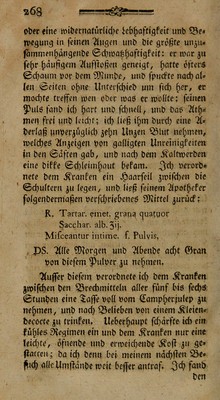 268
oder eine widernatürliche Lebhaftigkeit und Be-
wegung in seinen Augen und die größte unzu-
sammenhängende Schwatzhaftigkeit: er war zu
sehr häufigem Ausstoßen geneigt, hatte öfters
Schaum vor dem Munde, und spuckte nach al-
len Seiten ohne Unterschied um sich her, er
mochte treffen wen oder was er wollte: seinen
Puls fand ich hart und schnell, und das Ath-
men frei und leicht; ich ließ ihm durch eine A-
derlaß unverzüglich zehn Unzen Blut nehmen,
welches Anzeigen von galligten Unreinigkeiten
in den Säften gab, und nach dem Kaltwerden
eine dikke Schleimhaut bekam. Ich verord-
nete dem Kranken ein Haarseil zwischen die
Schultern zu legen, und ließ seinem Apotheker
folgendermaßen verschriebenes Mittel zurück:
R. Tartar. emet. grana quatuor
Sacchar. alb. ʒij.
Misceantur intime. f. Pulvis,
DS. Alle Morgen und Abende acht Gran
von diesem Pulver zu nehmen.
Ausser diesem verordnete ich dem Kranken
zwischen den Brechmitteln aller fünf bis sechs
Stunden eine Tasse voll vom Campherjulep zu
nehmen, und nach Belieben von einem Kleien-
decocte zu trinken. Ueberhaupt schärfte ich ein
kühles Regimen ein und dem Kranken nur eine
leichte, öfnende und erweichende Kost zu ge-
statten; da ich denn bei meinem nächsten Be-
such alle Umstände weit besser antraf. Ich fand
den